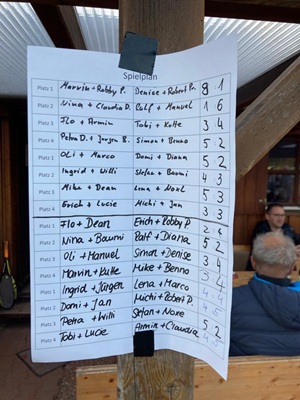 Spielplan
Platz 1 Marvin + Robby P. Denise + Robert P. 8 1
Platz 2 Nina + Claudia D. Rolf + Manuel 1 6
Platz 3 Flo + Armin Tobi + Kutte 3 4
Platz 4 Petra D. + Jürgen B. Simon + Benno 5 2
Platz 1 Oli + Marco Domi + Diana 5 2
Platz 2 Ingrid + Willi Stefan + Baumi 4 3
Platz 3 Mike + Dean Lena + Noxl 5 3
Platz 4 Erich + Lucie Michi + Jan 3 3
Platz 1 Flo + Dean Erich + Robby P
Platz 2 Nina + Baumi Ralf + Diana 5 2
Platz 3 Oli + Manuel Simon + Denise 3 4
Platz 4 Marvin + Kutte Mike + Benno
Platz 1 Ingrid + Jürgen Lena + Marco
Platz 2 Domi + Jan Michi + Robert P.
Platz 3 Petra + Willi Stefan +
Platz 4 Tobi + Lucie Armin + Claudia